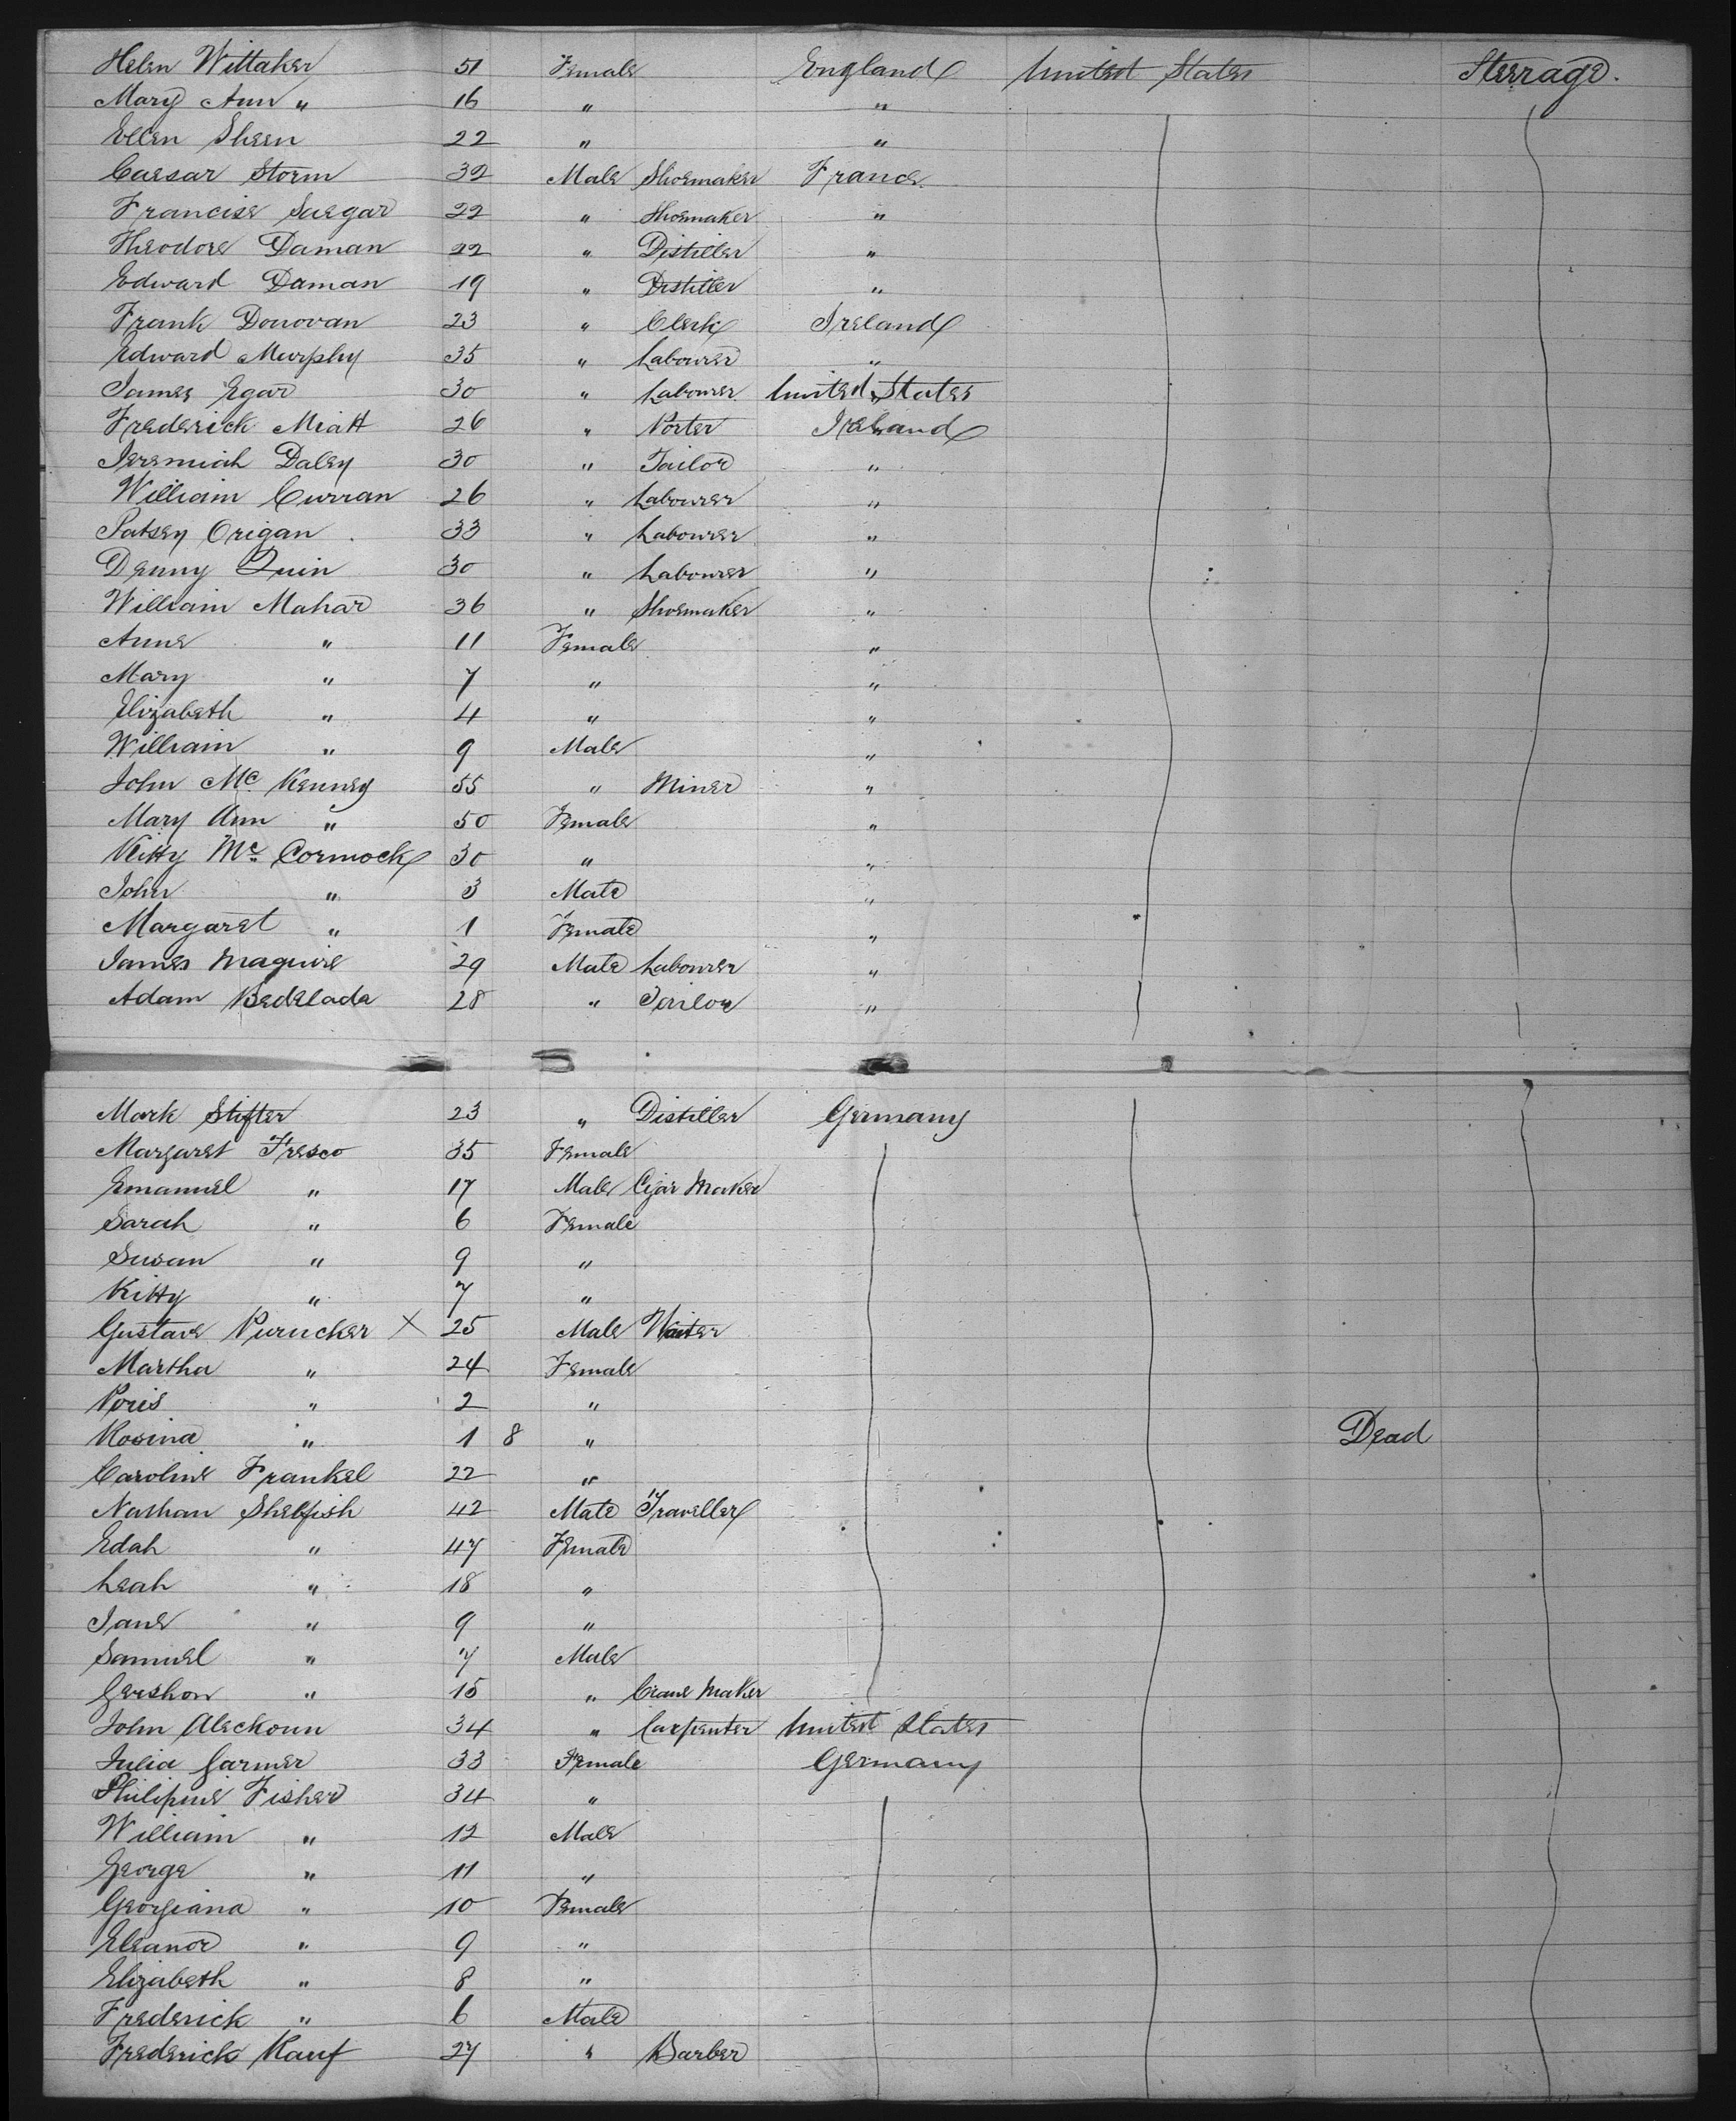 Helen Wittaker 51 Female England United States Steerage.
Mary Ann " 16 " "
Ellen Sheen 22 " "
Caesar Storm 32 Male Shoemaker France
Francise Saegar 22 " Shoemaker "
Theodore Daman 22 " Distiller "
Edward Daman 19 " Distiller "
Frank Donovan 23 " Clerk Ireland
Edward Murphy 35 " Labourer "
James Egar 30 " Labourer United States
Frederick Miatt 26 " Porter Ireland
Jeremiah Daley 30 " Tailor "
William Curran 26 " Labourer "
Patsey Origan 33 " Labourer "
Denny Quin 30 " Labourer "
William Mahar 36 " Shoemaker "
Anne " 11 Female "
Mary " 7 " "
Elizabeth " 4 " "
William " 9 Male "
John Mc Kenney 55 " Miner "
Mary Ann " 50 Female "
Kitty Mc Cormock 30 " "
John " 3 Male "
Margaret " 1 Female "
James Maguire 29 Male Labourer "
Adam Bedelada 28 " Tailor "
Mark Stifter 23 " Distiller Germany
Margaret Fresco 35 Female
Emanuel " 17 Male Cigar Maker
Sarah " 6 Female
Susan " 9 "
Kitty " 7 "
Gustave Purucker X 25 Male Waiter
Martha " 24 Female
" 2 "
Rosina " 1 8 " Dead
Caroline Frankel 22 "
Nathan Shelfish 42 Male Traveller
Edah " 47 Female
Leah " 18 "
Jane " 9 "
Samuel " 7 Male
Gershon " 15 " Maker
John Aleckoun 34 " Carpenter United States
Julia Garmer 33 Female Germany
Philipine Fisher 34 "
William " 12 Male
George " 11 "
Georgiana " 10 Female
Eleanor " 9 "
Elizabeth " 8 "
Frederick " 6 Male
Frederick Kauf 27 " Barber